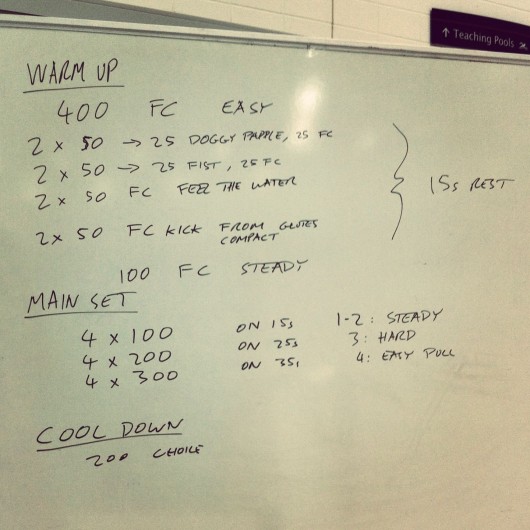 ↑ Teaching Pools
WARM UP
400 FC EASY
2 x 50 → 25 DOGGY PADDLE, 25 FC
2 x 50 → 25 FIST, 25 FC
2 x 50 FC FEEL THE WATER
15s REST
2 x 50 FC KICK FROM GLUTES
COMPACT
100 FC STEADY
MAIN SET
4 x 100 ON 15s 1-2: STEADY
4 x 200 ON 25s 3: HARD
4 x 300 ON 35s 4: EASY PULL
COOL DOWN
200 CHOICE